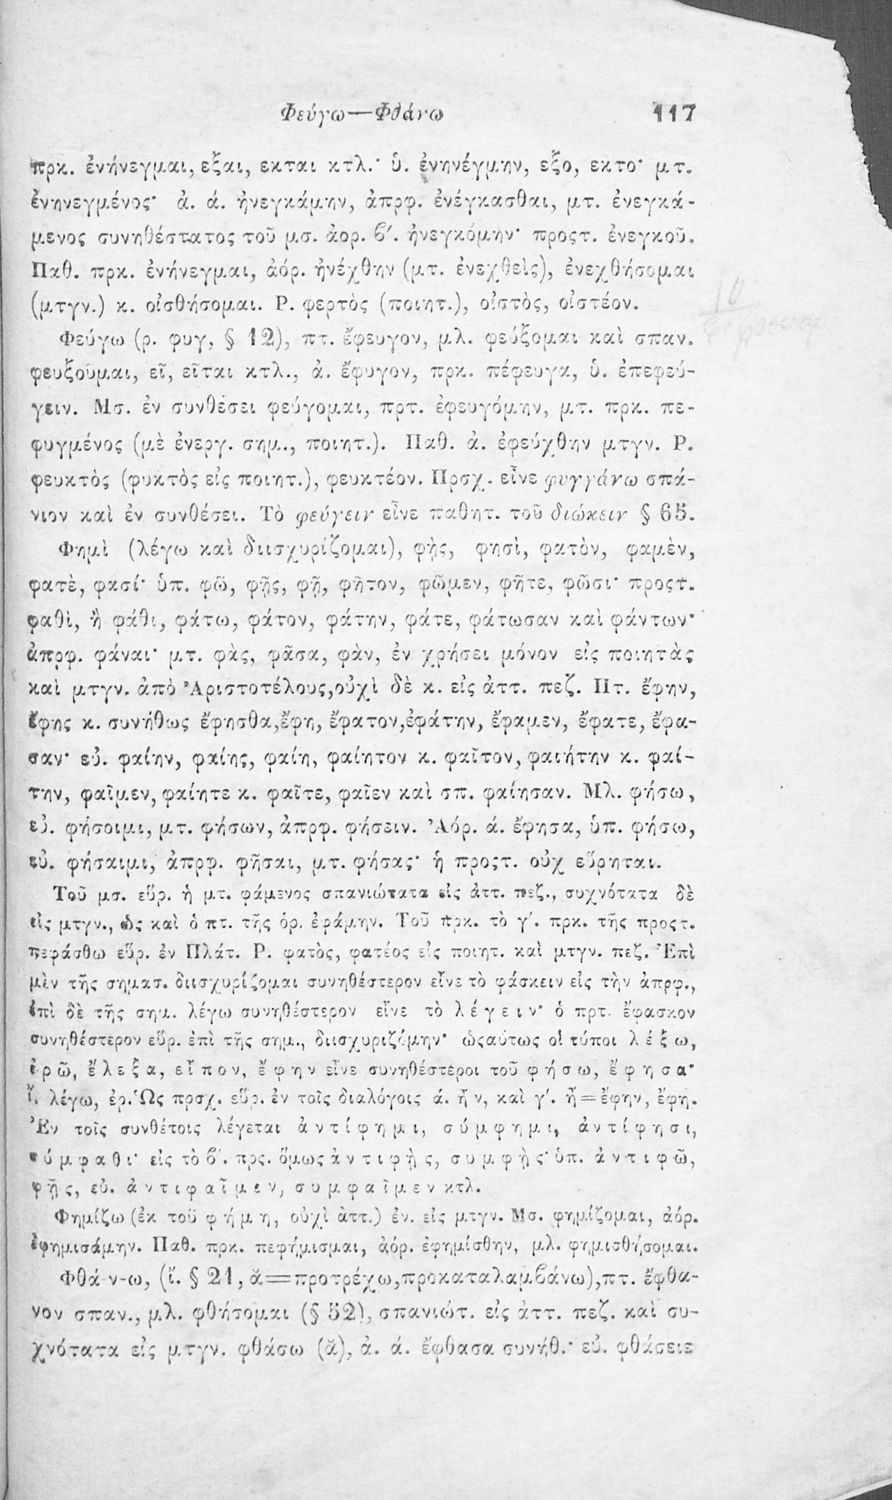 Φεύγω—Φθάνω 117
πρκ. ἐνήνεγμαι, εξαι, εκται κτλ.· ὑ. ἐνηνέγμην, εξο, εκτο· μτ.
ἐνηνεγμένος· ἀ. ά. ἠνεγκάμην, ἀπρφ. ἐνέγκασθαι, μτ. ἐνεγκά-
μενος συνηθέστατος τοῦ μσ. ἀορ. β΄. ἠνεγκόμην· προστ. ἐνεγκοῦ.
Παθ. πρκ. ἐνήνεγμαι, ἀόρ. ἠνέχθην (μτ. ἐνεχθεὶς), ἐνεχθήσομαι
(μτγν.) κ. οἰσθήσομαι. Ρ. φερτὸς (ποιητ.), οἰστὸς, οἰστέον.
Φεύγω (ρ. φυγ, § 12), πτ. ἔφευγον, μλ. φεύξομαι καὶ σπαν.
φευξοῦμαι, εῖ, εῖται κτλ., ἀ. ἔφυγον, πρκ. πέφευγα, ὑ. ἐπεφεύ-
γειν. Μσ. ἐν συνθέσει φεύγομαι, πρτ. ἐφευγόμην, μτ. πρκ. πε-
φυγμένος (μὲ ἐνεργ. σημ., ποιητ.). Παθ. ἀ. ἐφεύχθην μτγν. Ρ.
φευκτὸς (φυκτὸς εἰς ποιητ.), φευκτέον. Πρσχ. εἶνε φυγγάνω σπά-
νιον καὶ ἐν συνθέσει. Τὸ φεύγειν εἶνε παθητ. τοῦ διώκειν § 65.
Φημὶ (λέγω καὶ διισχυρίζομαι), φῂς, φησὶ, φατὸν, φαμὲν,
φατὲ, φασί· ὑπ. φῶ, φῇς, φῇ, φῆτον, φῶμεν, φῆτε, φῶσι· προςτ.
φαθὶ, ἢ φάθι, φάτω, φάτον, φάτην, φάτε, φάτωσαν καὶ φάντων·
ἀπρφ. φάναι· μτ. φὰς, φᾶσα, φὰν, ἐν χρήσει μόνον εἰς ποιητὰς
καὶ μτγν. ἀπὸ Ἀριστοτέλους, οὐχὶ δὲ κ. εἰς ἀττ. πεζ. Πτ. ἔφην,
ἔφης κ. συνήθως ἔφησθα, ἔφη, ἔφατον, ἐφάτην, ἔφαμεν, ἔφατε, ἔφα-
σαν· εὐ. φαίην, φαίης, φαίη, φαίητον κ. φαῖτον, φαιήτην κ. φαί-
την, φαῖμεν, φαίητε κ. φαῖτε, φαῖεν καὶ σπ. φαίησαν. Μλ. φήσω,
εὐ. φήσοιμι, μτ. φήσων, ἀπρφ. φήσειν. Ἀόρ. ά. ἔφησα, ὑπ. φήσω,
εὐ. φήσαιμι, ἀπρφ. φῆσαι, μτ. φήσας· ἡ προςτ. οὐχ εὕρηται.
Τοῦ μσ. εὕρ. ἡ μτ. φάμενος σπανιώτατα εἰς ἀττ. πεζ., συχνότατα δὲ
εἰς μτγν., ὡς καὶ ὁ πτ. τῆς ὁρ. ἐφάμην. Τοῦ πρκ. τὸ γ΄. πρκ. τῆς προςτ.
πεφάσθω εὕρ. ἐν Πλάτ. Ρ. φατὸς, φατέος εἰς ποιητ. καὶ μτγν. πεζ. Ἐπὶ
μὲν τῆς σημασ. διισχυρίζομαι συνηθέστερον εἶνε τὸ φάσκειν εἰς τὴν ἀπρφ.,
ἐπὶ δὲ τῆς σημ. λέγω συνηθέστερον εἶνε τὸ λέγειν· ὁ πρτ. ἔφασκον
συνηθέστερον εὕρ. ἐπὶ τῆς σημ., διισχυριζόμην· ὡςαύτως οἱ τύποι λέξω,
ἐρῶ, ἔλεξα, εἶπον, ἔφην εἶνε συνηθέστεροι τοῦ φήσω, ἔφησα·
ἴ. λέγω, ἐρ. Ὡς πρσχ. εὕρ. ἐν τοῖς διαλόγοις ά. ἦν, καὶ γ΄. ἦ=ἔφην, ἔφη.
Ἐν τοῖς συνθέτοις λέγεται ἀντίφημι, σύμφημι, ἀντίφησι,
σύμφαθι· εἰς τὸ β΄. πρς. ὅμως ἀντιφῂς, συμφῂς· ὑπ. ἀντιφῶ,
φῇς, εὐ. ἀντιφαῖμεν, συμφαῖμεν κτλ.
Φημίζω (ἐκ τοῦ φήμη, οὐχὶ ἀττ.) ἐν. εἰς μτγν. Μσ. φημίζομαι, ἀόρ.
ἐφημισάμην. Παθ. πρκ. πεφήμισμαι, ἀόρ. ἐφημίσθην, μλ. φημισθήσομαι.
Φθάν-ω, (ἴ. § 21, ᾰ=προτρέχω, προκαταλαμβάνω), πτ. ἔφθα-
νον σπαν., μλ. φθήσομαι (§ 52), σπανιώτ. εἰς ἀττ. πεζ. καὶ συ-
χνότατα εἰς μτγν. φθάσω (ᾰ), ἀ. ά. ἔφθασα συνήθ.· εὐ. φθάσειε
10